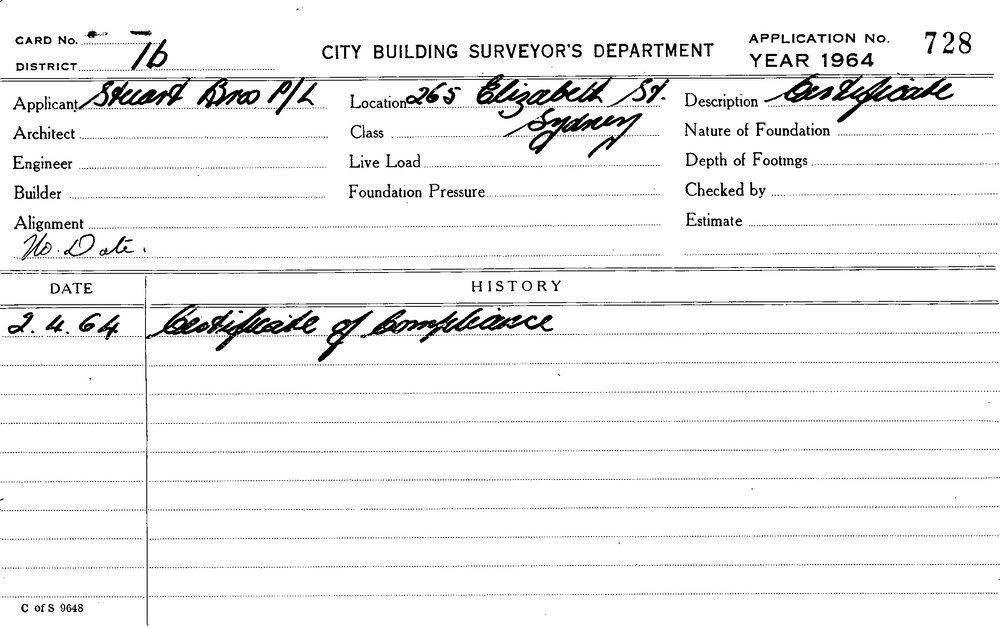 CARD No.
CITY BUILDING SURVEYOR'S DEPARTMENT
APPLICATION No. 728
YEAR 1964
DISTRICT 1b
Applicant Stuart Bros P/L
Location 265 Elizabeth St.
Sydney
Description Certificate
Architect
Class
Nature of Foundation
Engineer
Live Load
Depth of Footings
Builder
Foundation Pressure
Checked by
Alignment
Estimate
No. Date.
DATE HISTORY
2.4.64 Certificate of Compliance
C of S 9648